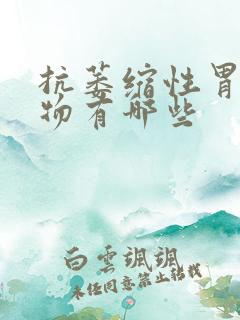 抗萎缩性胃
物有哪些
白云飒飒
未经同意禁止转载